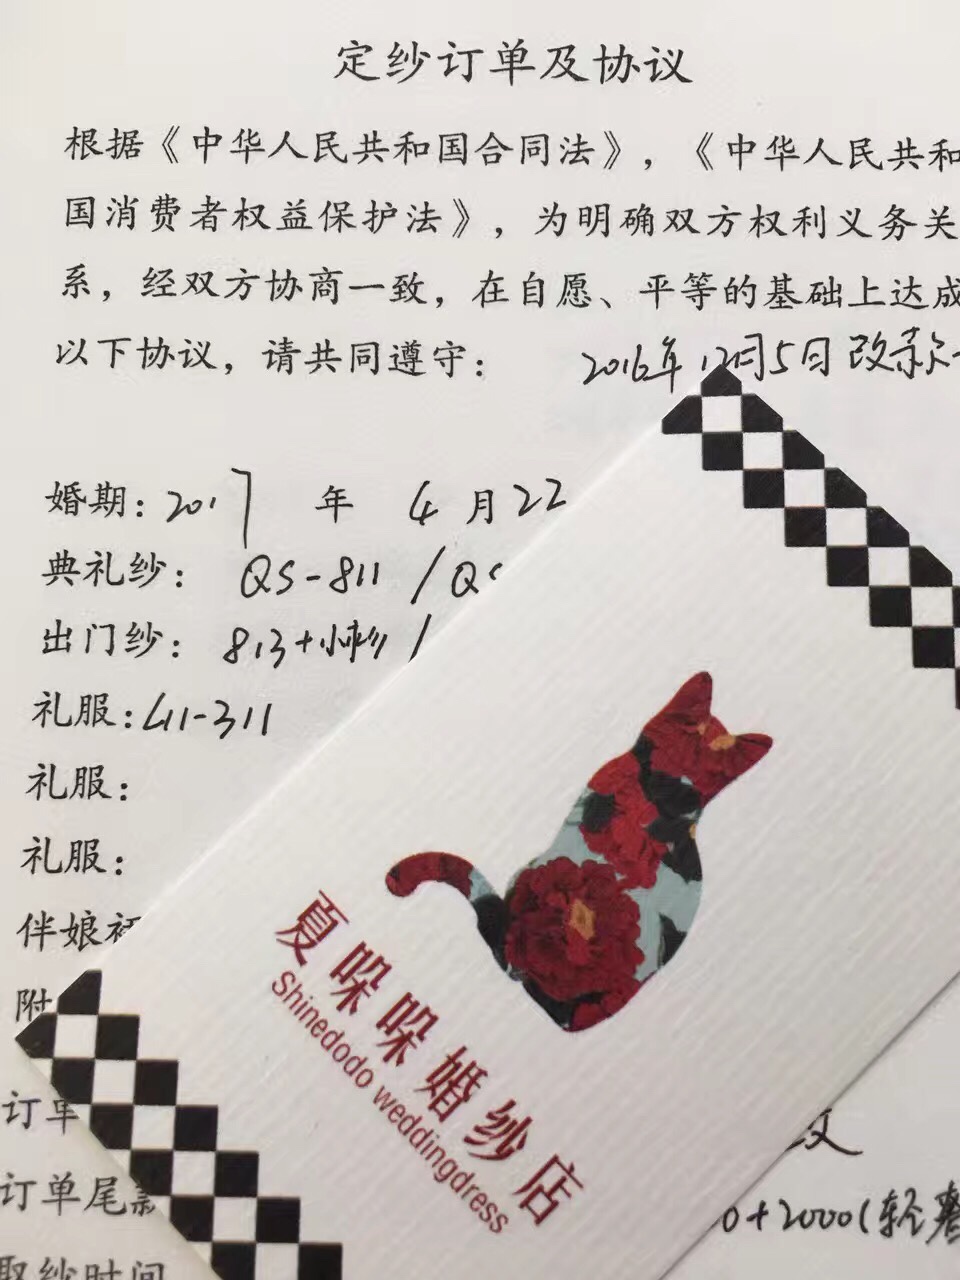 定纱订单及协议
根据《中华人民共和国合同法》，《中华人民共和
国消费者权益保护法》，为明确双方权利义务关
系，经双方协商一致，在自愿、平等的基础上达成
以下协议，请共同遵守：
2016年12月5日改款
婚期：2017 年 4 月 22
典礼纱： QS-811 / QS
出门纱： 813+小衫 /
礼服：411-311
礼服：
礼服：
伴娘
附
订单
订单尾款
+2000(轻奢
取纱时间
夏哚哚婚纱店
Shinedodo weddingdress